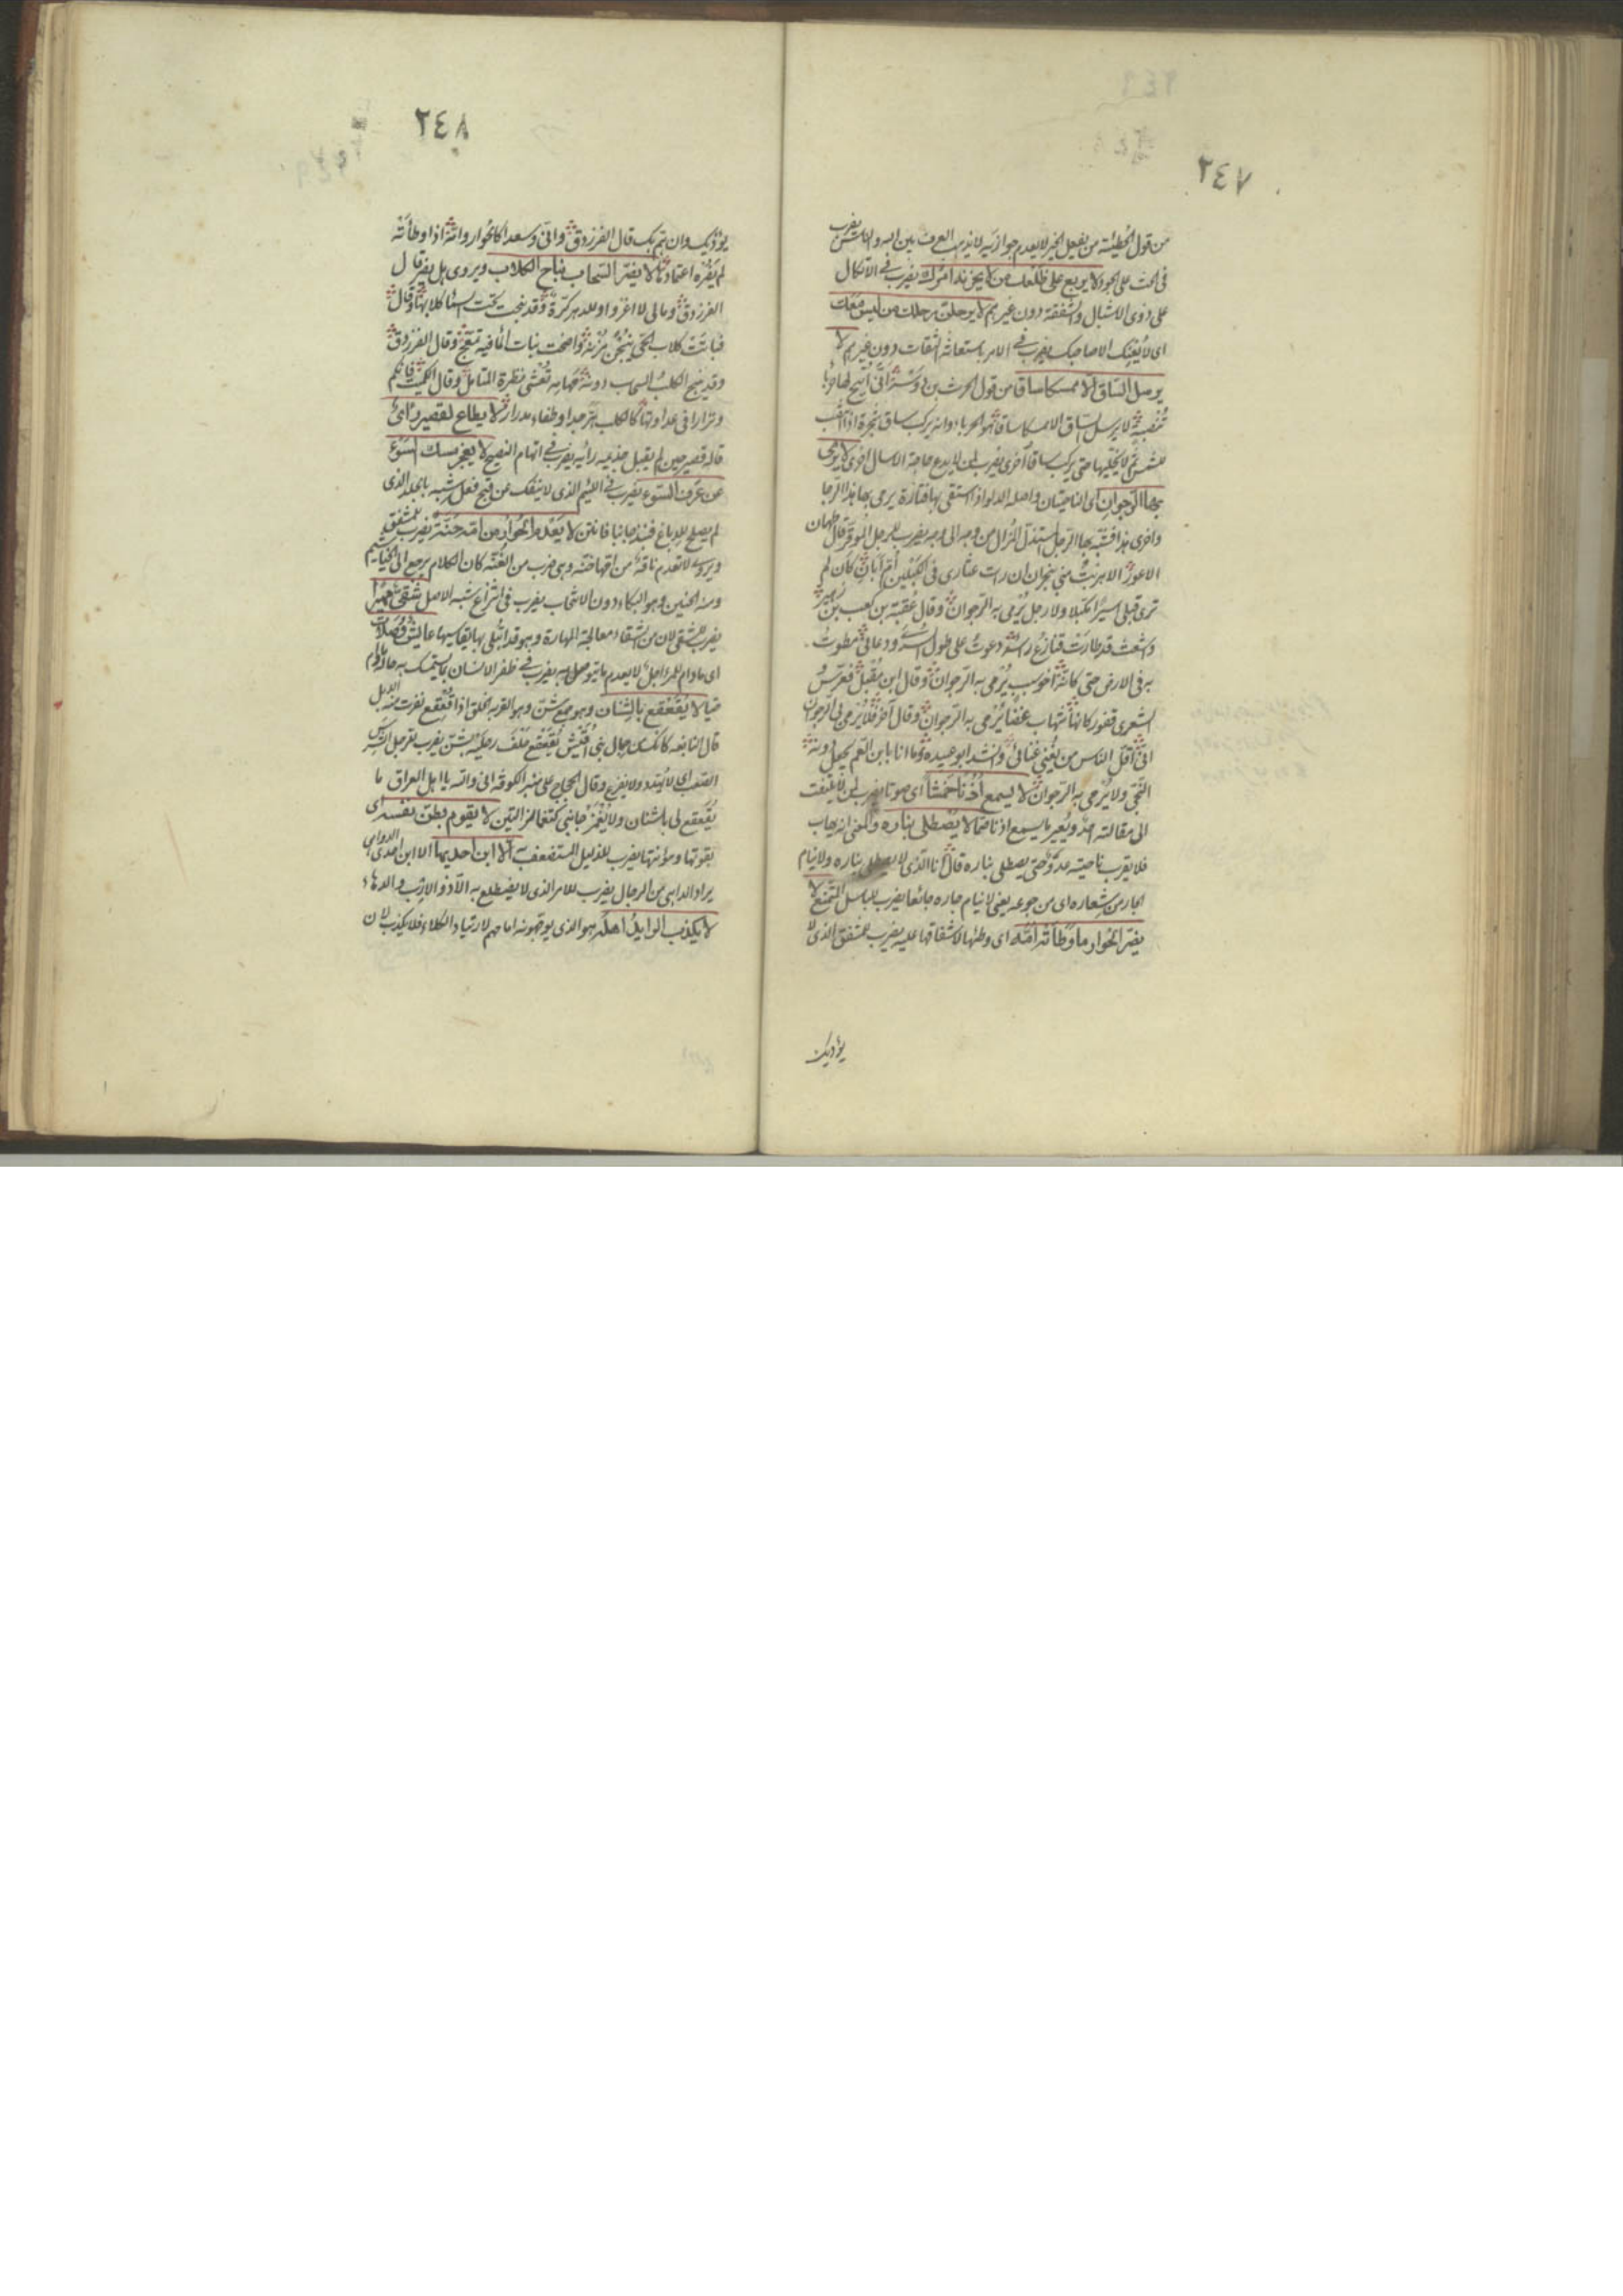 ٢٤٧
من قول الحطيئة من يفعل الخير لا يعدم جوازيه لا يذهب العرف بين الله والناس يضرب
فى الحث على الجود لا يربع على ظلعك من لا يحزنه امرك يضرب فى الاتكال
على ذوى الاشبال والشفقة دون غيرهم لا يرحلن رحلك من ليس معك
اى لا يعينك الا صاحبك يضرب فى الامر باستعانة الثقات دون غيرهم لا
يرسل الساق الا ممسكا ساقا من قول الحرث بن دوس انى اتيح لها حرباء
تنضبة لا يرسل الساق الا ممسكا ساقا هو الحرباء وانه يركب ساق شجرة اذا
للشمس ثم لا يخليها حتى يركب ساقا اخرى يضرب لمن لا يدع حاجة الا سال اخرى لا يرمى
بها الرجوان اى الناحيتان واصله الدلو اذا استقى بها فتارة يرمى بها هذا الرجا
واخرى هذا فشبه بها الرجل استذل المزال من وجه الى وجه يضرب للرجل الموقر قال طهمان
الاعور الا هزئت منى بنجران ان رات عثارى فى الكبلين ام ابان كان لم
ترى قبلى اسيرا مكبلا ولا رجلا يرمى به الرجوان وقال عقبة بن كعب بن زهير
واشعث قد طارت قنازع راسه دعوت على طول السرى ودعانى مطوت
به فى الارض حتى كانه اخو سبب يرمى به الرجوان وقال ابن مقبل فعرس
الشعرى قفور كانها شهاب غضا يرمى به الرجوان وقال آخر فلا يرمى بى الرجوان
انى اقل الناس من يغنى غنائى وانشد ابو عبيده وما انا بابن العم يجعل دونه
النجى ولا يرمى به الرجوان لا يسمع اذنا خمشا اى صوتا يضرب لمن لا يلتفت
الى مقالته احد ويعير ما يسمع اذنا صما لا يصطلى بناره والمعنى انه يهاب
فلا يقرب ناحيته عدو حتى يصطلى بناره قال انا الذى لا يصطلى بناره ولا ينام
الجار من شعاره اى من جوعه يعنى لا ينام جاره جائعا يضرب للباسل المتمنع لا
يضر الحوار ما وطأته امه اى وطئها لاشفاقها عليه يضرب للمشفق الذى لا
يؤذيك
٢٤٨
يؤذيك وان تم بك قال الفرزدق وانى وسعدا كالحوار وامه اذا وطأته
لم يضره اعتمادها لا يضر السحاب نباح الكلاب ويروى هل يضر قال
الفرزدق ومالى لا اغزو وللدهر كرة وقد نبحت تحت السماء كلابها وقال
فباتت كلاب الحى ينبحن مزنه واضحت بنات الماء فيه تمعج وقال الفرزدق
وقد ينبح الكلب السحاب ودونه مهامه تعشى نظرة المتامل وقال الكميت فانكم
ونزارا فى عداوتها كالكلب هر جدا وطفاء مدرار لا يطاع لقصير راى
قاله قصير حين لم يقبل جذيمه رائه يضرب فى اتهام النصيح لا يعجز مسك السوء
عن عرف السوء يضرب فى اللئيم الذى لا ينفك عن قبح فعل شبه بالجلد الذى
لم يصلح للدباغ فنبذ جانبا فانتن لا يعدم الحوار من امه حنة يضرب للمشفق
ويروى لا تعدم ناقة من امها حنه وهى ضرب من الغنه كان الكلام يرجع الى الخياشيم
ومنه الحنين وهو البكاء دون الانتحاب يضرب فى انتزاع شبه الاصل شقى مهيرا
يضرب للشقى لان من الشقاء معالجة المهارة وهو قد ابتلى بها يقاسيها
اى ما دام للمرء اجل لا يعدم ما يتوصل به يضرب فى ظفر الانسان بما يستمسك به مادام
حيا لا يقعقع بالشنان وهو جمع شن وهو القربه الخلق اذا قعقع نفرت منه الابل
قال النابغه كانك من جمال بنى اقيش يقعقع خلف رجليه بشن يضرب للرجل الشرس
الصعب اى لا يهدد ولا يفزع وقال الحجاج على منبر الكوفه انى والله يا اهل العراق ما
يقعقع لى بالشنان ولا يغمز جانبى كتغماز التين لا يقوم بطن نفسه اى
بقوتها ومؤنتها يضرب للذليل المستضعف به الا ابن احديها الا ابن احدى الدواهى
يراد الداهى من الرجال يضرب للامر الذى لا يضطلع به الا ذو الارب والدهاء
لا يكذب الرايد اهله هو الذى يوجهونه امامهم لارتياد الكلاء فلا يكذب لان